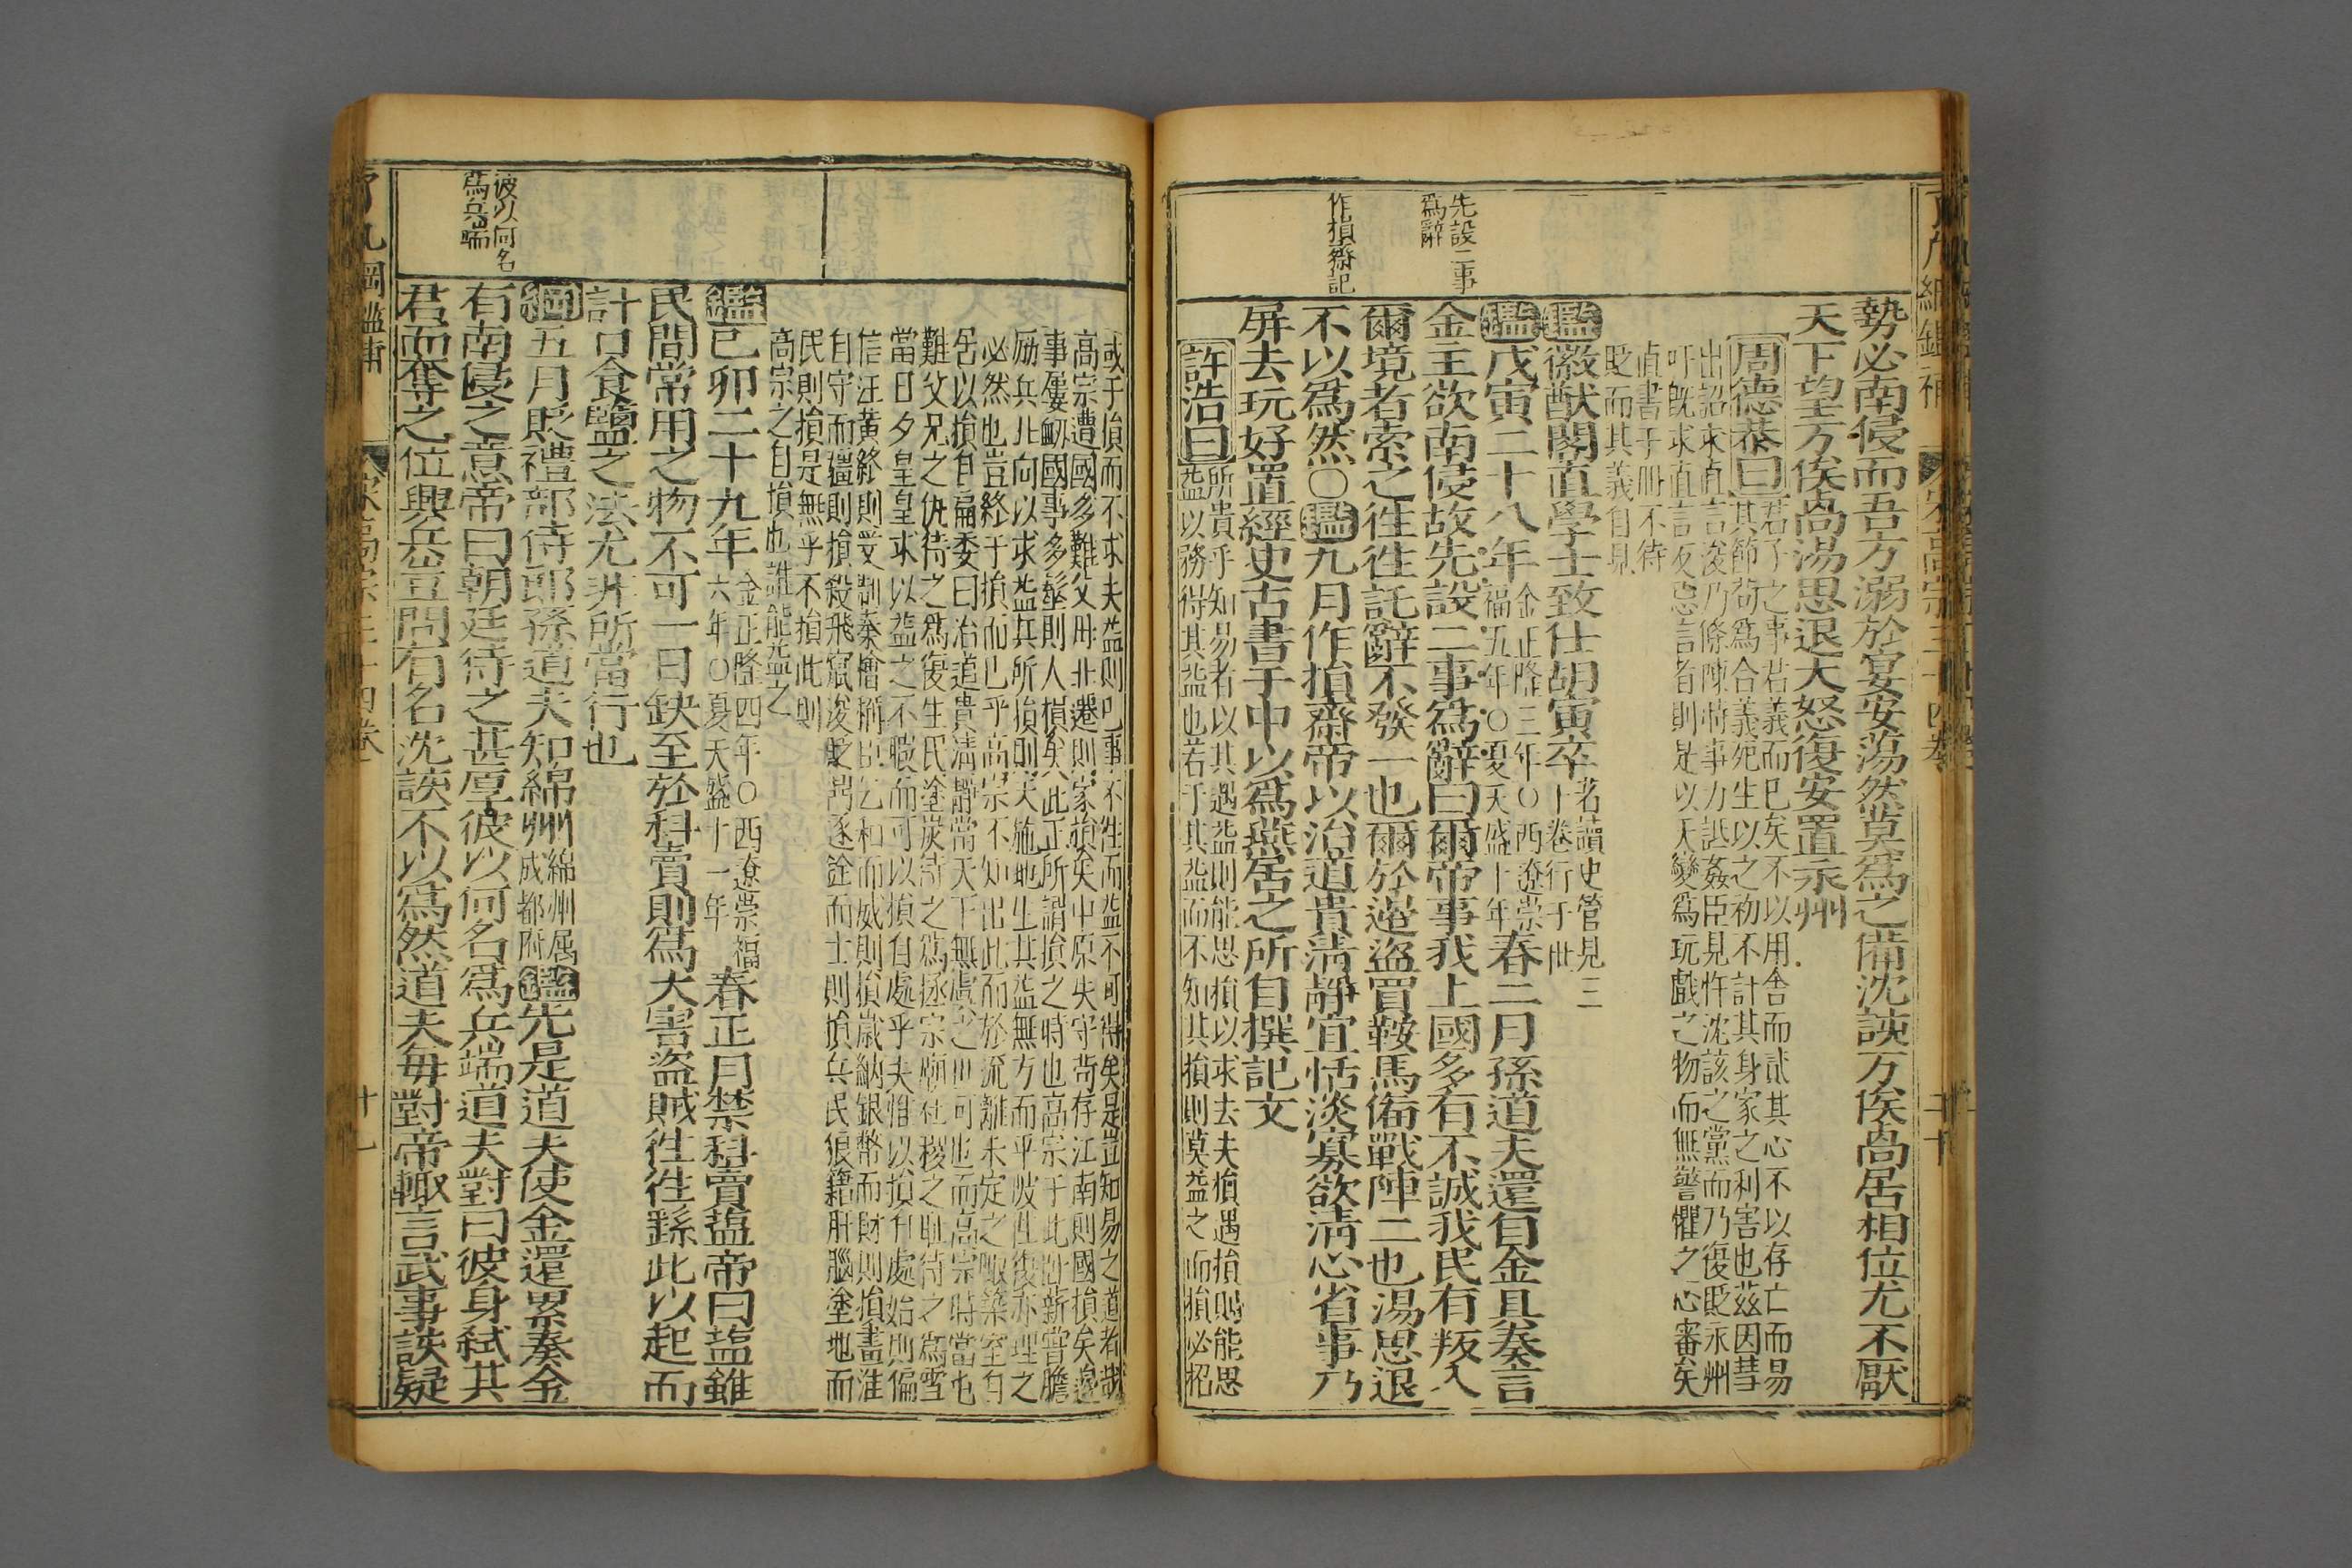 先設二事
爲辭
作損齋記
勢必南侵而吾方溺於宴安蕩然莫爲之備沈該万俟卨居相位尤不厭
天下望万俟卨湯思退大怒復安置永州
周德恭曰
君子之事君義而已矣不以用舍而貳其心不以存亡而易
其節苟爲合義死生以之初不計其身家之利害也茲因彗
出詔求直言浚乃條陳時事力詆姦臣見忤沈該之黨而乃復貶永州
吁旣求直言反惡言者則是以天變爲玩戲之物而無警懼之心審矣
直書于冊不待
貶而其義自見
鑑徽猷閣直學士致仕胡寅卒
名讀史管見三
十卷行于世
鑑戊寅二十八年
金正隆三年○西遼崇
福五年○夏天盛十年
春二月孫道夫還自金具奏言
金主欲南侵故先設二事爲辭曰爾帝事我上國多有不誠我民有叛入
爾境者索之往往託辭不發一也爾於邊盜買鞍馬備戰陣二也湯思退
不以爲然○鑑九月作損齋帝以治道貴清靜宜恬淡寡欲淸心省事乃
屏去玩好置經史古書于中以爲燕居之所自撰記文
許浩曰
所貴乎知易者以其遇益則能思損以求去夫損遇損則能思
益以務得其益也若于其益而不知其損則莫益之而損必招
彼以何名
爲兵端
或于損而不求夫益則已事不往而益不可得矣是豈知易之道者哉
高宗遭國多難父母北遷則家損矣中原失守苟存江南則國損矣邊
事屢衂國事多艱則人損矣此正所謂損之時也高宗于此臥薪嘗膽
厲兵北向以求益兵所損則天施地生其益無方而平陂往復亦理之
必然也豈終于損而已乎高宗不知出此而於流離未定之際築室自
居以損自扁委曰治道貴清靜當天下無虞之世可也而高宗時當也
難父兄之仇待之爲復生民塗炭待之爲拯宗廟社稷之恥待之爲雪
當日夕皇皇求以益之不暇而可以損自處乎夫惟以損自處始則偏
信汪黃終則受制秦檜稱臣乞和而威則損歲納銀幣而財則損畫淮
自守而疆則損殺飛竄浚貶鬲逐詮而士則損兵民狼籍肝腦塗地而
民則損是無乎不損此則
高宗之自損也誰能益之
鑑己卯二十九年
金正隆四年○西遼崇福
六年○夏天盛十一年
春正月禁科賣鹽帝曰鹽雖
民間常用之物不可一日缺至於科賣則爲大害盜賊往往繇此以起而
計口食鹽之法尤非所當行也
綱五月貶禮部侍郎孫道夫知綿州
綿州属
成都府
鑑先是道夫使金還累奏金
有南侵之意帝曰朝廷待之甚厚彼以何名爲兵端道夫對曰彼身弑其
君而奪之位興兵豈問有名沈該不以爲然道夫每對帝輙言武事該疑